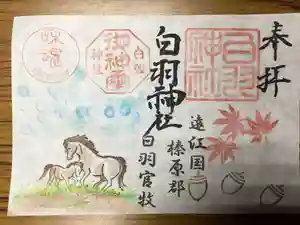 奉拝
白羽神社
白羽神社
遠江国
榛原郡
白羽官牧
白羽神社
御神霊